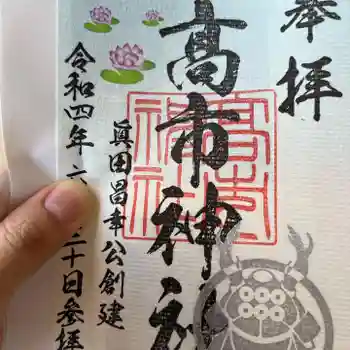 奉拝
高市神社
眞田昌幸公創建
令和四年六 三十日参拝